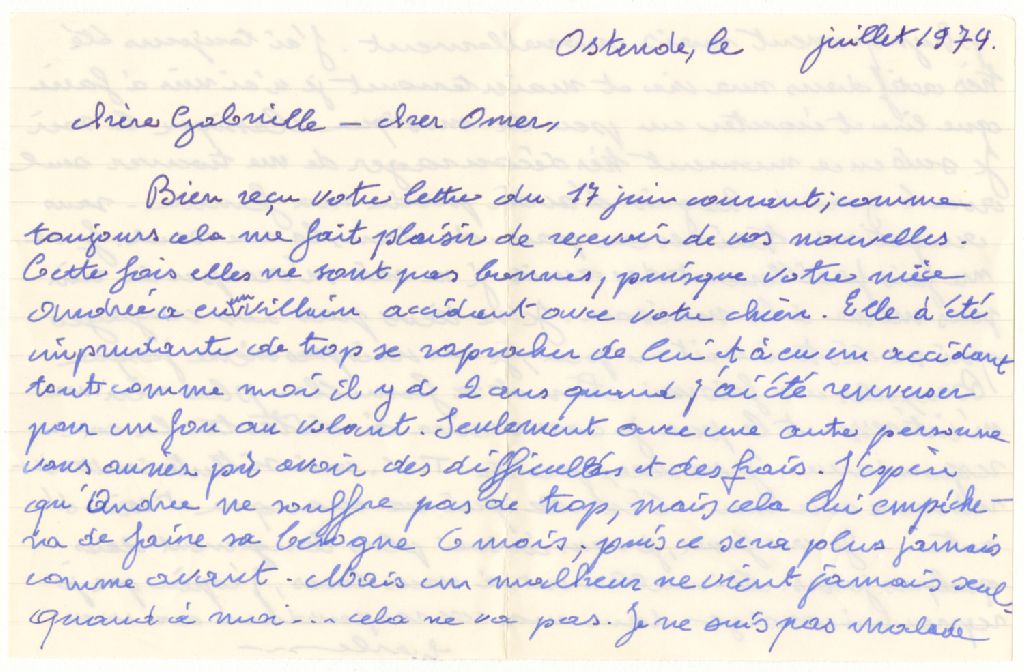 Ostende, le juillet 1974.
chère Gabrielle – cher Omer,
Bien reçu votre lettre du 17 juin courant; comme
toujours cela me fait plaisir de reçevoir de vos nouvelles.
Cette fois elles ne sont pas bonnes, puisque votre nièce
Andrée a eu un villain accident avec votre chien. Elle à été
imprudante de trop se raprocher de lui et à eu un accident
tout comme moi il y à 2 ans quand j'ai été renverser
par un fou au volant. Seulement avec une autre personne
vous auriés pû avoir des difficultés et des frais. J'espère
qu'Andrée ne souffre pas de trop, mais cela lui empêche-
ra de faire sa besogne 6 mois, puis ce sera plus jamais
comme avant. Mais un malheur ne vient jamais seul-
Quand à moi... cela ne va pas. Je ne suis pas malade